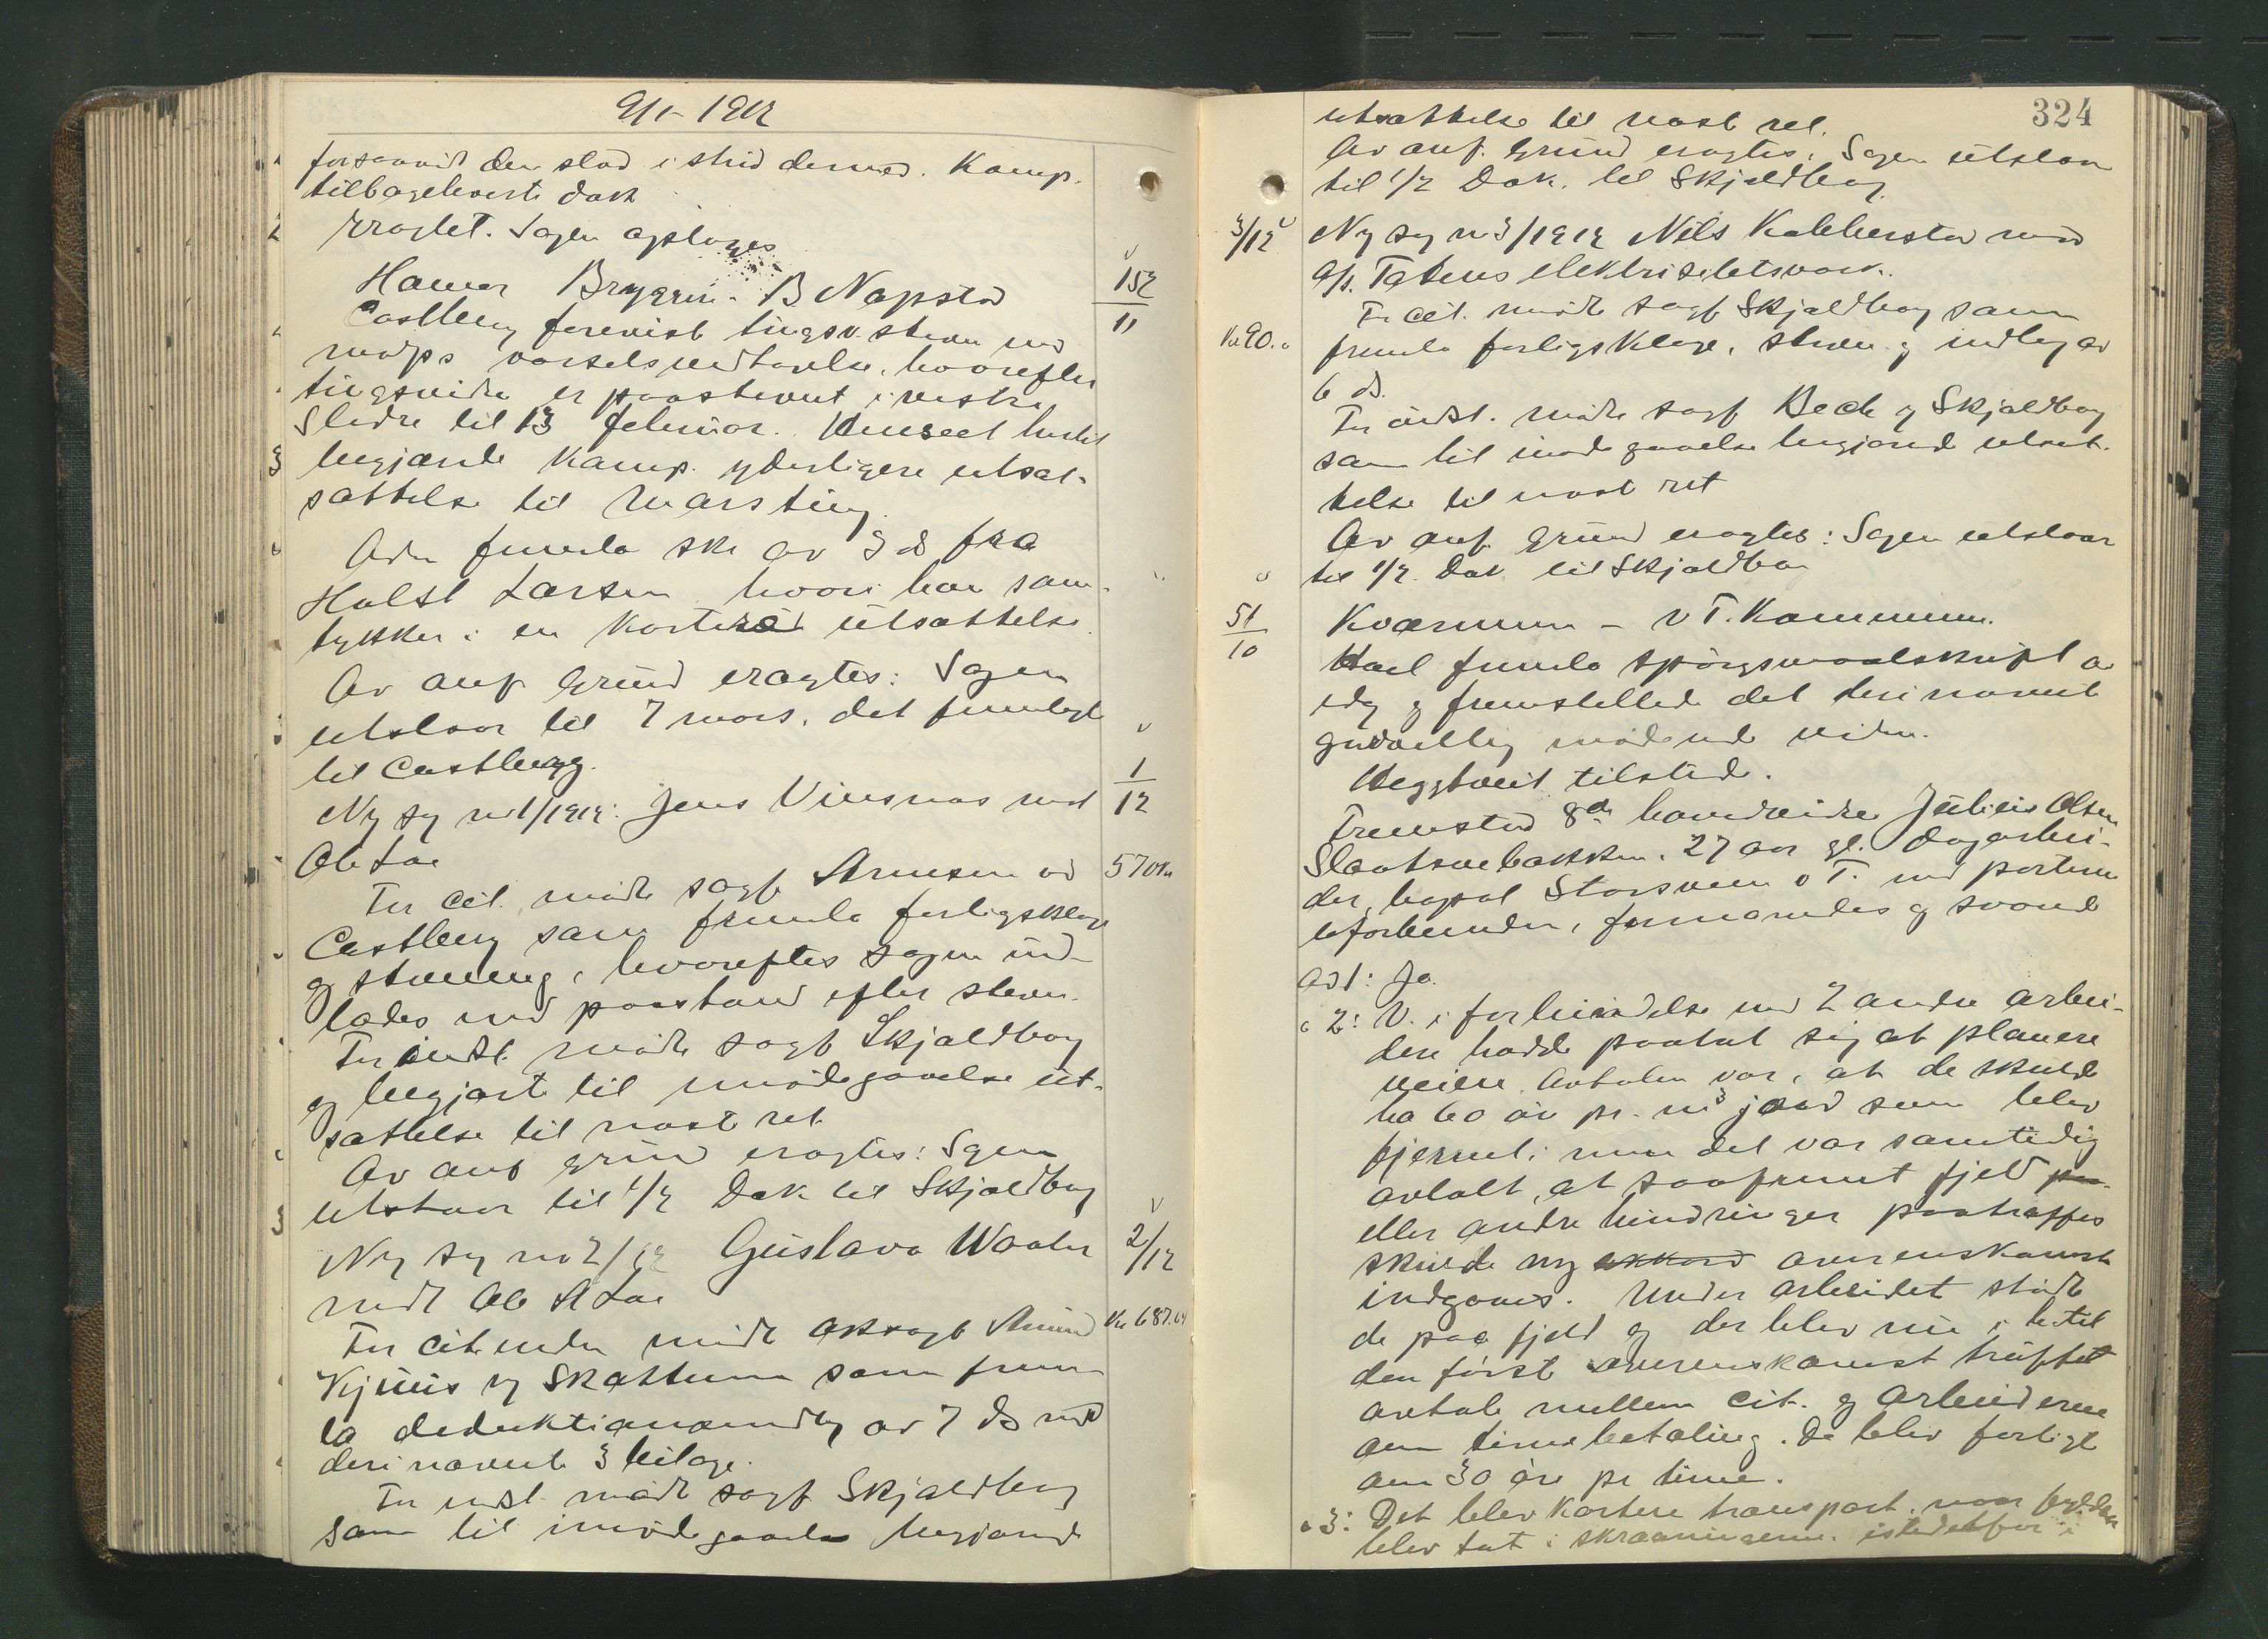 9/1 - 1912
forsaavidt den stod i strid dermed. Komp.
tilbageleverte dok
Eragtet. Sagen optages
Hamar Bryggeri - B Napstad
152
11
Castberg foreviste tingsv. stevn med
modps varselsvedtagelse, hvorefter
tingsvidne er paastevnt i vestre
Slidre til 13 februar. Uanseet hertil
begjærte Komp. yderligere utsæt-
sættelse til marsting.
fremla skr av 3 ds fra
Holst Larsen hvori han sam-
tykker i en kortere utsættelse.
Av anf grund eragtes: Sagen
utstaar til 7 mars, det fremlagte
til Castberg.
Ny sag no 1/1912: Jens Vinsnas mot
1
12
Ole Loe
For cit. mødte sagf Arnesen ved
Castberg som fremla forligsklage
og stevning, hvorefter sagen ind-
lodes med paastand efter stevn.
For indst mødte sagf Skjaldborg
og begjærte til imødegaaelse ut-
sættelse til næste ret
Av anf grund eragtes: Sagen
utstaar til 1/2 Dok til Skjaldborg
Ny sag no 2/12 Gustava Waaler
2/12
mot Ole A Loe
For citanten mødte Arnind
Kr 687.04
Kjuus og Skattum som frem
la deduktionsindlæg av 7 ds med
deri nævnte 3 bilage.
For indst mødte sagf Skjaldborg
som til imødegaaelse begjærede
324
utsættelse til næste ret.
Av anf. grund eragtes: Sagen utstaar
til 1/2 Dok. til Skjaldborg
3/12
Ny sag no 3/1912 Nils Kobberstad mot
A/s. Totens elektrisitetsverk.
For cit. mødte sagf Skjaldborg som
Kr 90.
fremla forligsklage, stevn. og indlæg av
6 ds.
For indst. mødte sagf Bech og Skjaldborg
som til imødegaaelse begjærede utsæt-
telse til næste ret
Av anf. grund eragtes: Sagen utstaar
til 1/2. Dok til Skjaldborg
51
10
Kværnum - V T. Kommune.
Hoel fremla spørgsmaalskrift av
idag og fremstillede det deri nævnte
godvillig mødende vidne.
Heggtveit tilstede.
Fremstod 8de hovedvidne Julius Olsen
Slaatsvebakken. 27 aar gl. dagarbei-
der, bopæl Storsveen v T. med parterne
uforbunden, formanedes og svarede
ad 1: Ja.
" 2: V. i forbindelse med 2 andre arbei-
dere hadde paatat sig at planere
veien. Avtalen var, at de skulde
ha 60 ør pr. m3 jord som blev
fjernet; men det var samtidig
avtalt, at saafremt fjeld paa
eller andre hindringer paatraffes
skulde ny akkord overenskomst
indgaaes. Under arbeidet stødte
de paa fjeld og der blev nu i
den først overenskomst truffet
avtale mellem cit. og arbeiderne
om timebetaling. De blev forligt
om 30 øre pr time.
" 3: Det blev kortere transport, naar fylden
blev tat i skraaningerne istedetfor i